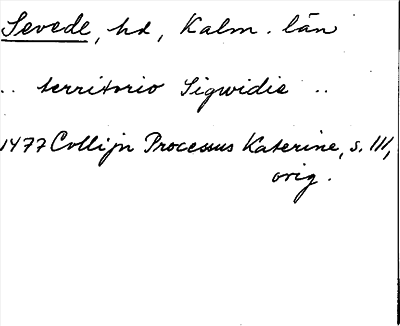 Sevede, hd, Kalm. län
.. territorio Sigwidie ..
1477 Collijn Processus Katerine, s. III,
orig.